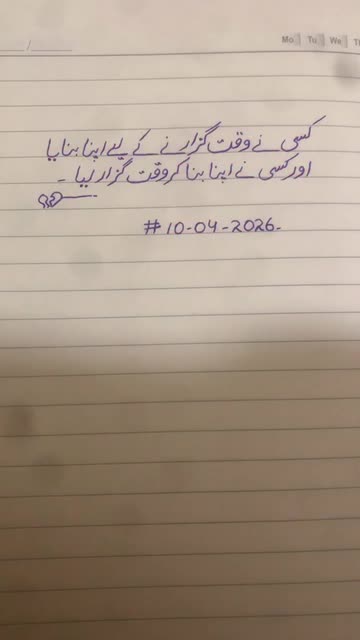 /
Mo Tu We Th
کسی نے وقت گزارنے کے لیے اپنا بنایا
اور کسی نے اپنا بنا کر وقت گزار لیا -
# 10-04-2026-